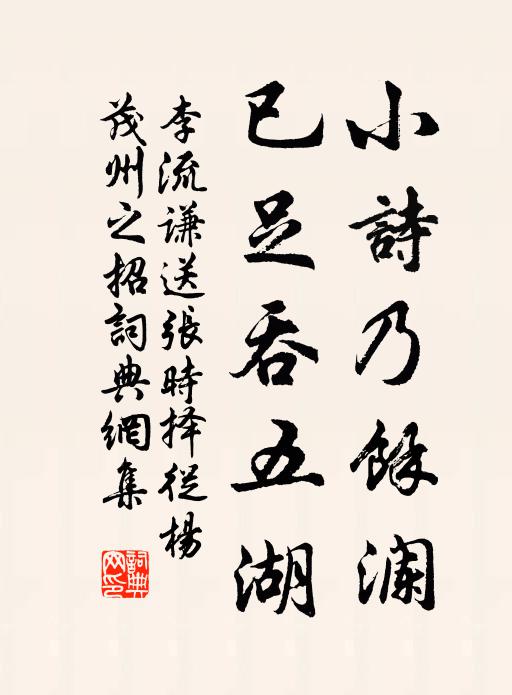 小詩乃餘瀾
已足吞五湖
李流謙送張時择從楊
茂州之招詞典網集
詞典网印